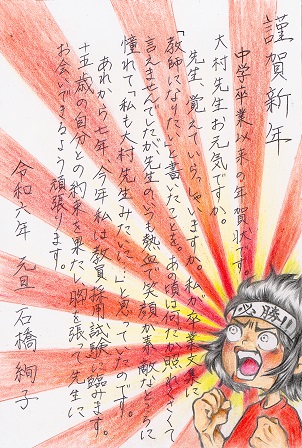 謹賀新年
中学卒業以来の年賀状です。
大村先生お元気ですか。
先生、覚えていらっしゃいますか。私が卒業文集に
「教師になりたい」と書いたことを。あの頃は何だか照れくさくて
言えませんでしたが先生のいつも熱血で笑顔が素敵なところに
憧れて「私も大村先生みたいに…」と思っていたのです。
あれから七年、今年私は教員採用試験に臨みます。
十五歳の自分との約束を果たし胸を張って先生に
お会いできるよう頑張ります。
令和六年 元旦 石橋絢子
必勝